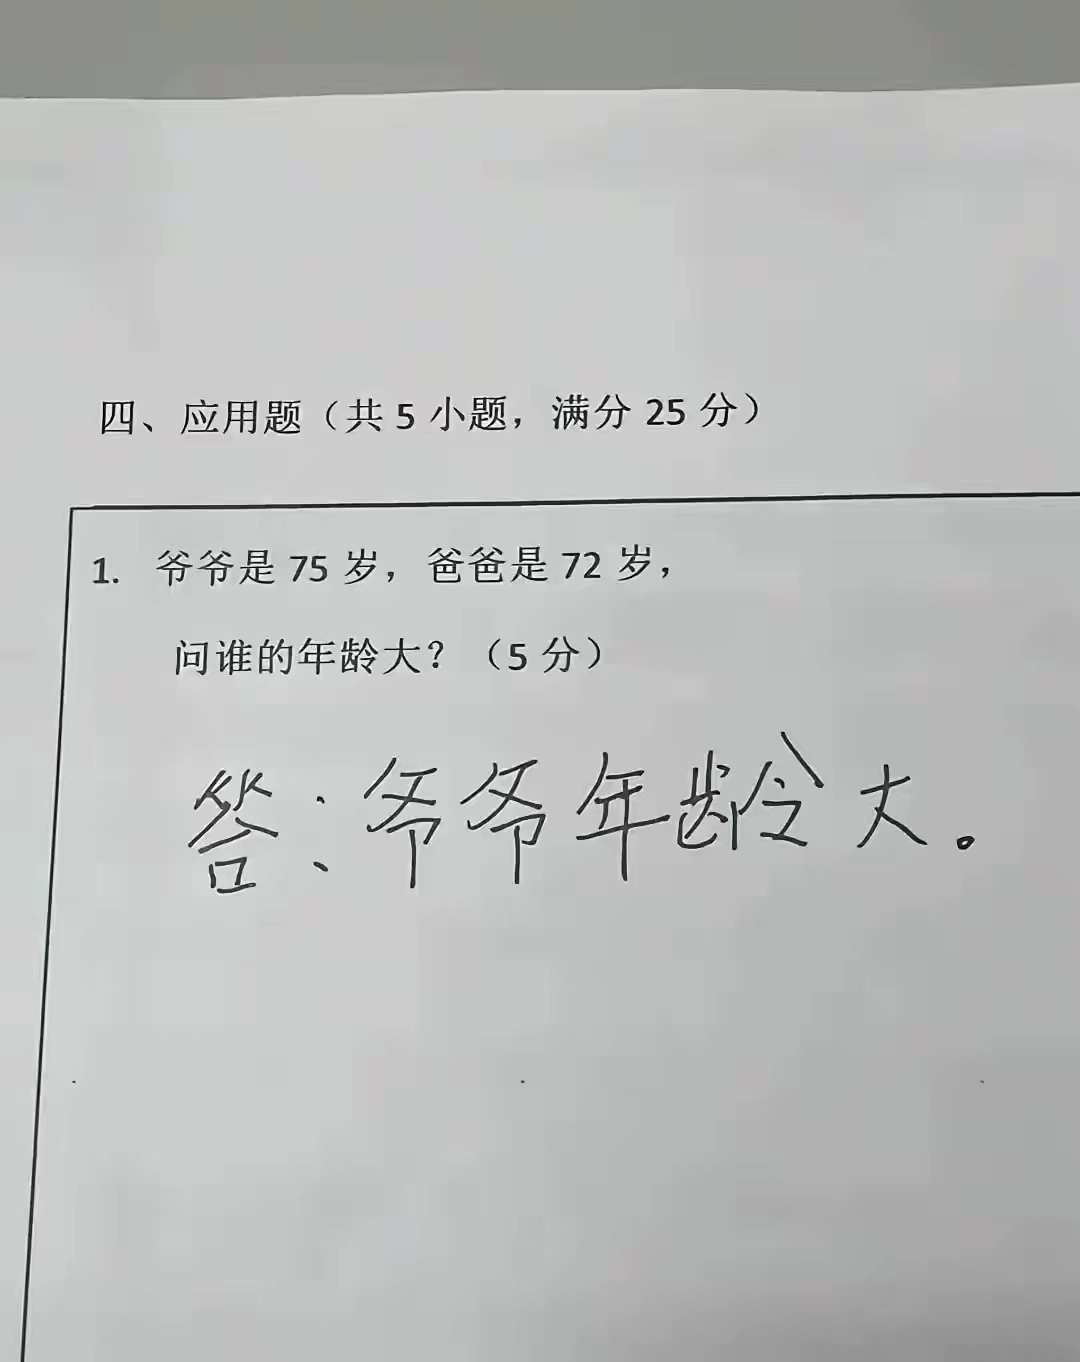 四、应用题（共 5 小题，满分 25 分）
1. 爷爷是 75 岁，爸爸是 72 岁，
问谁的年龄大？（5 分）
答：爷爷年龄大。